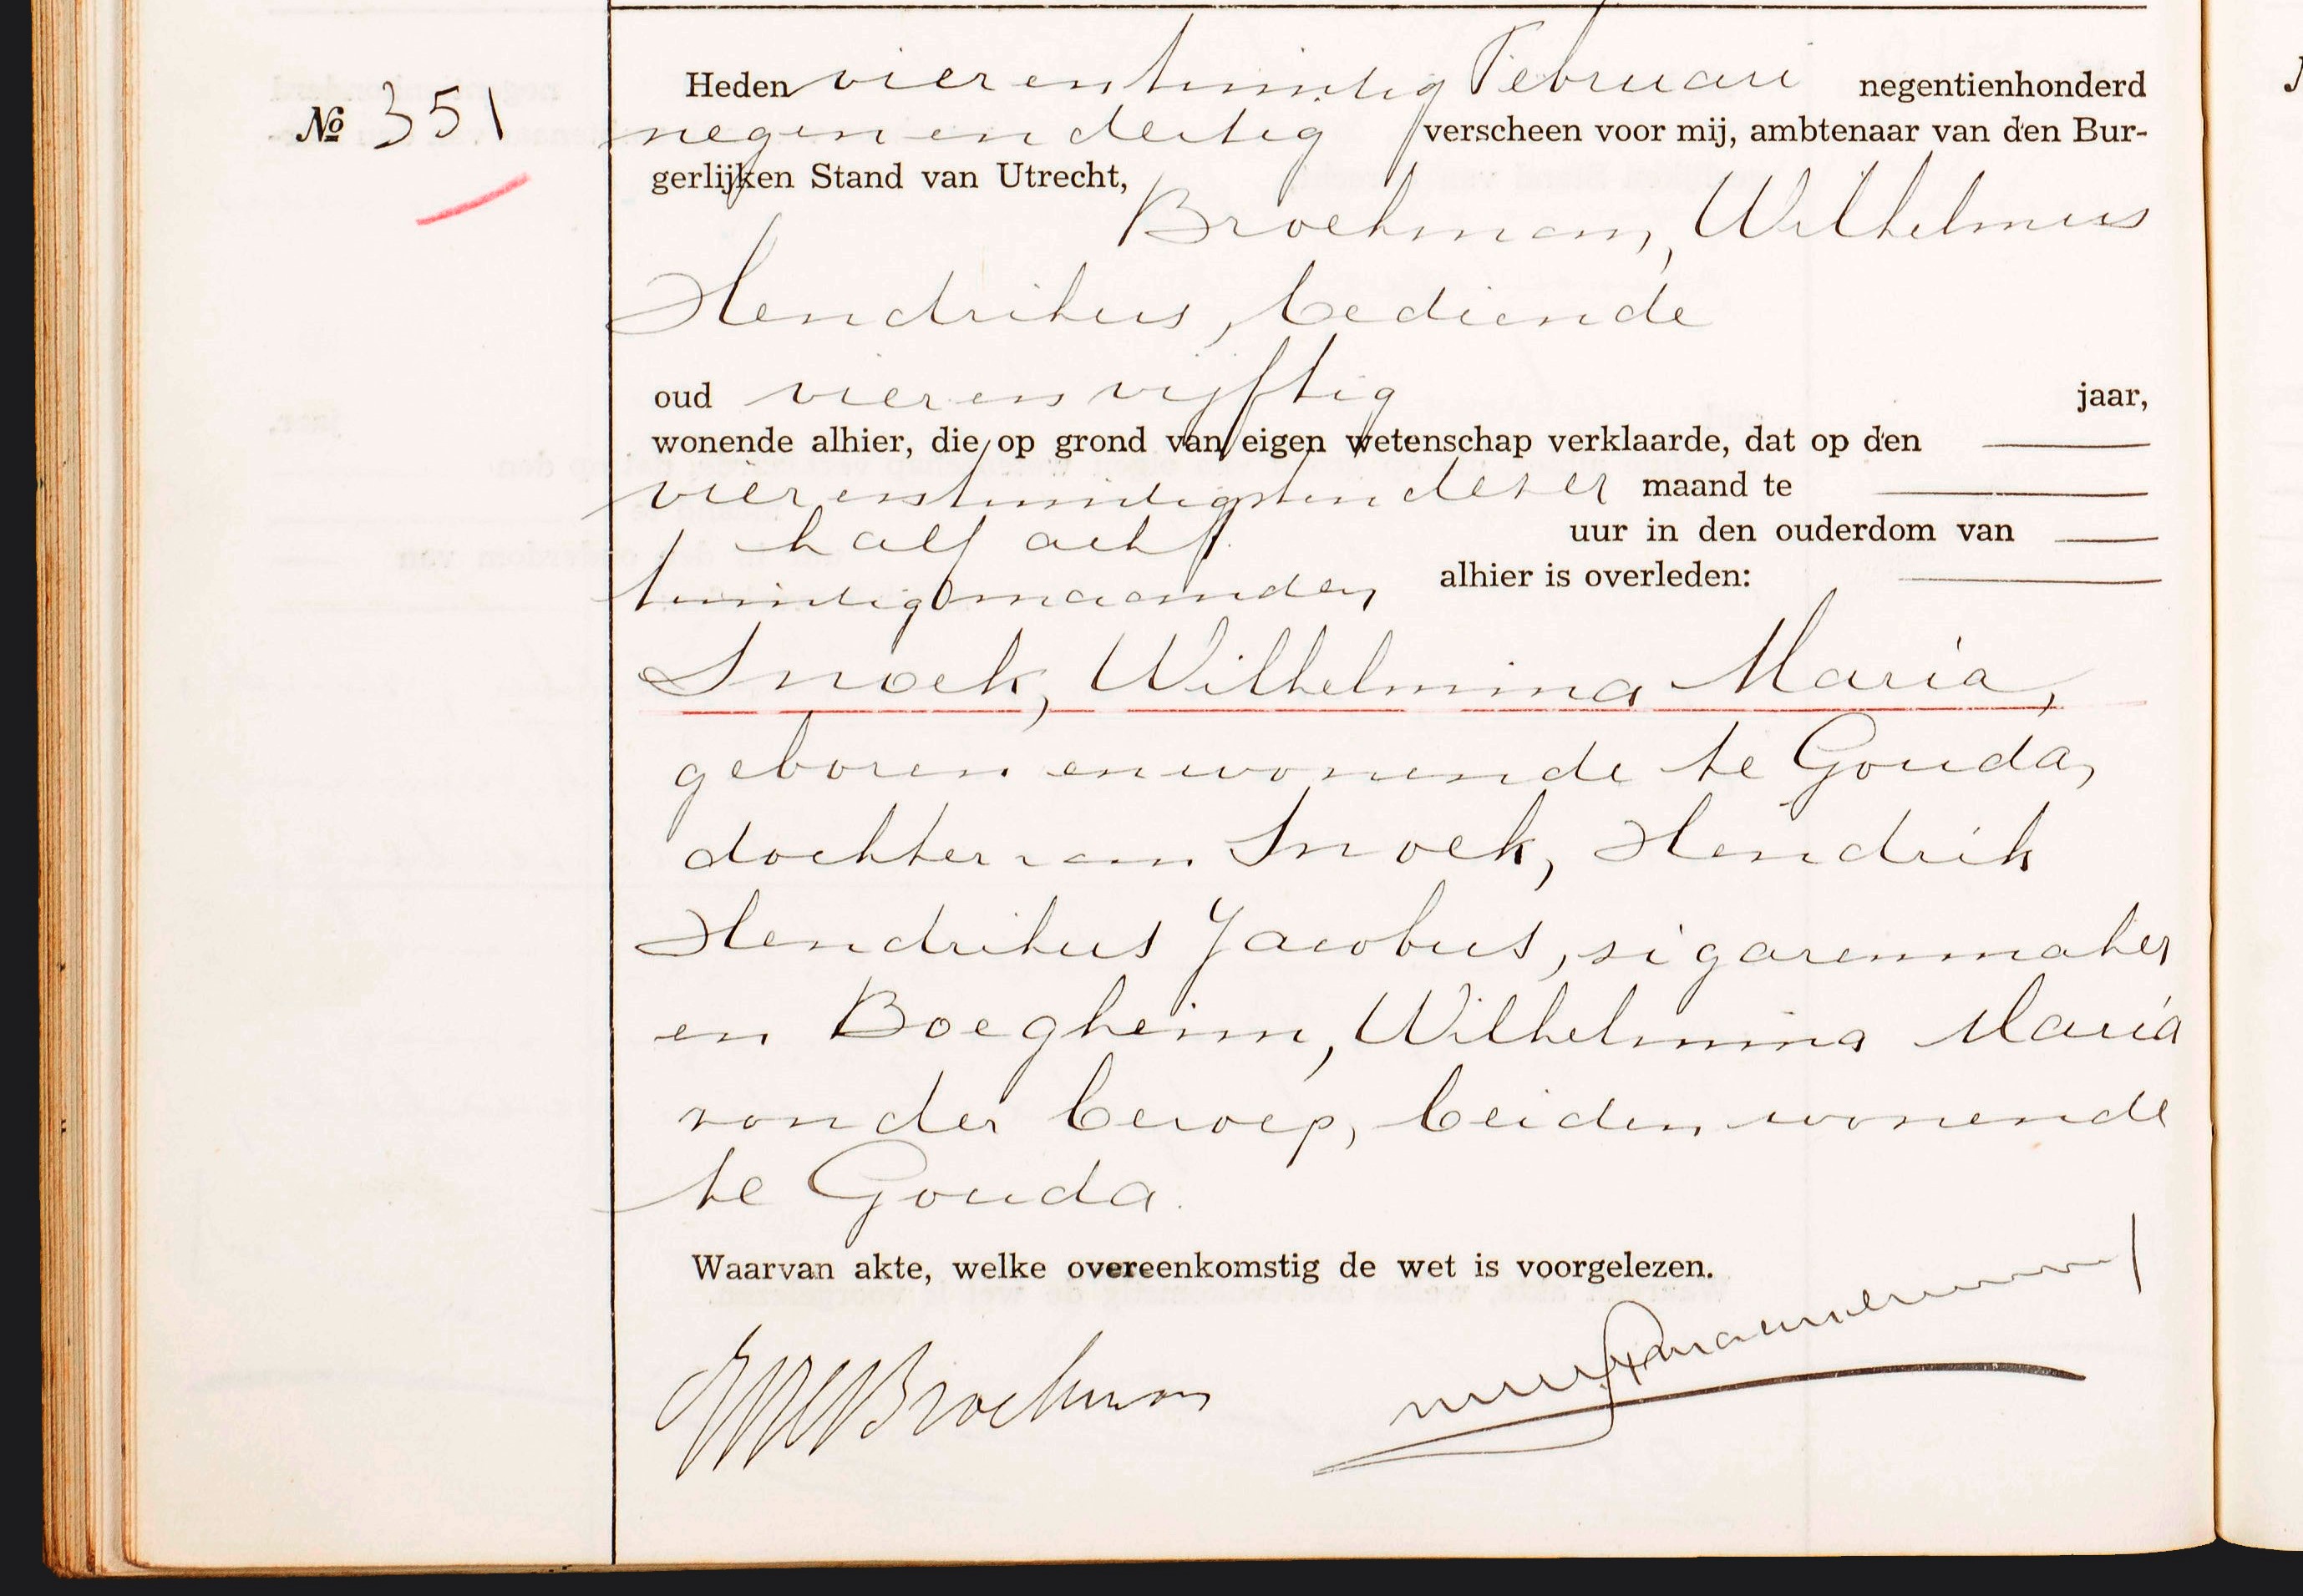 Heden vierentwintig Februari negentienhonderd
№ 351
negenendertig verscheen voor mij, ambtenaar van den Bur-
gerlijken Stand van Utrecht,
Broekman, Wilhelmus
Hendrikus, bediende
oud vierenvijftig jaar,
wonende alhier, die op grond van eigen wetenschap verklaarde, dat op den
vierentwintigsten dezer maand te
half acht uur in den ouderdom van
twintig maanden alhier is overleden:
Snoek, Wilhelmina Maria,
geboren en wonende te Gouda,
dochter van Snoek, Hendrik
Hendrikus Jacobus, sigarenmaker
en Boegheim, Wilhelmina Maria
zonder beroep, beiden wonende
te Gouda.
Waarvan akte, welke overeenkomstig de wet is voorgelezen.
Broekman